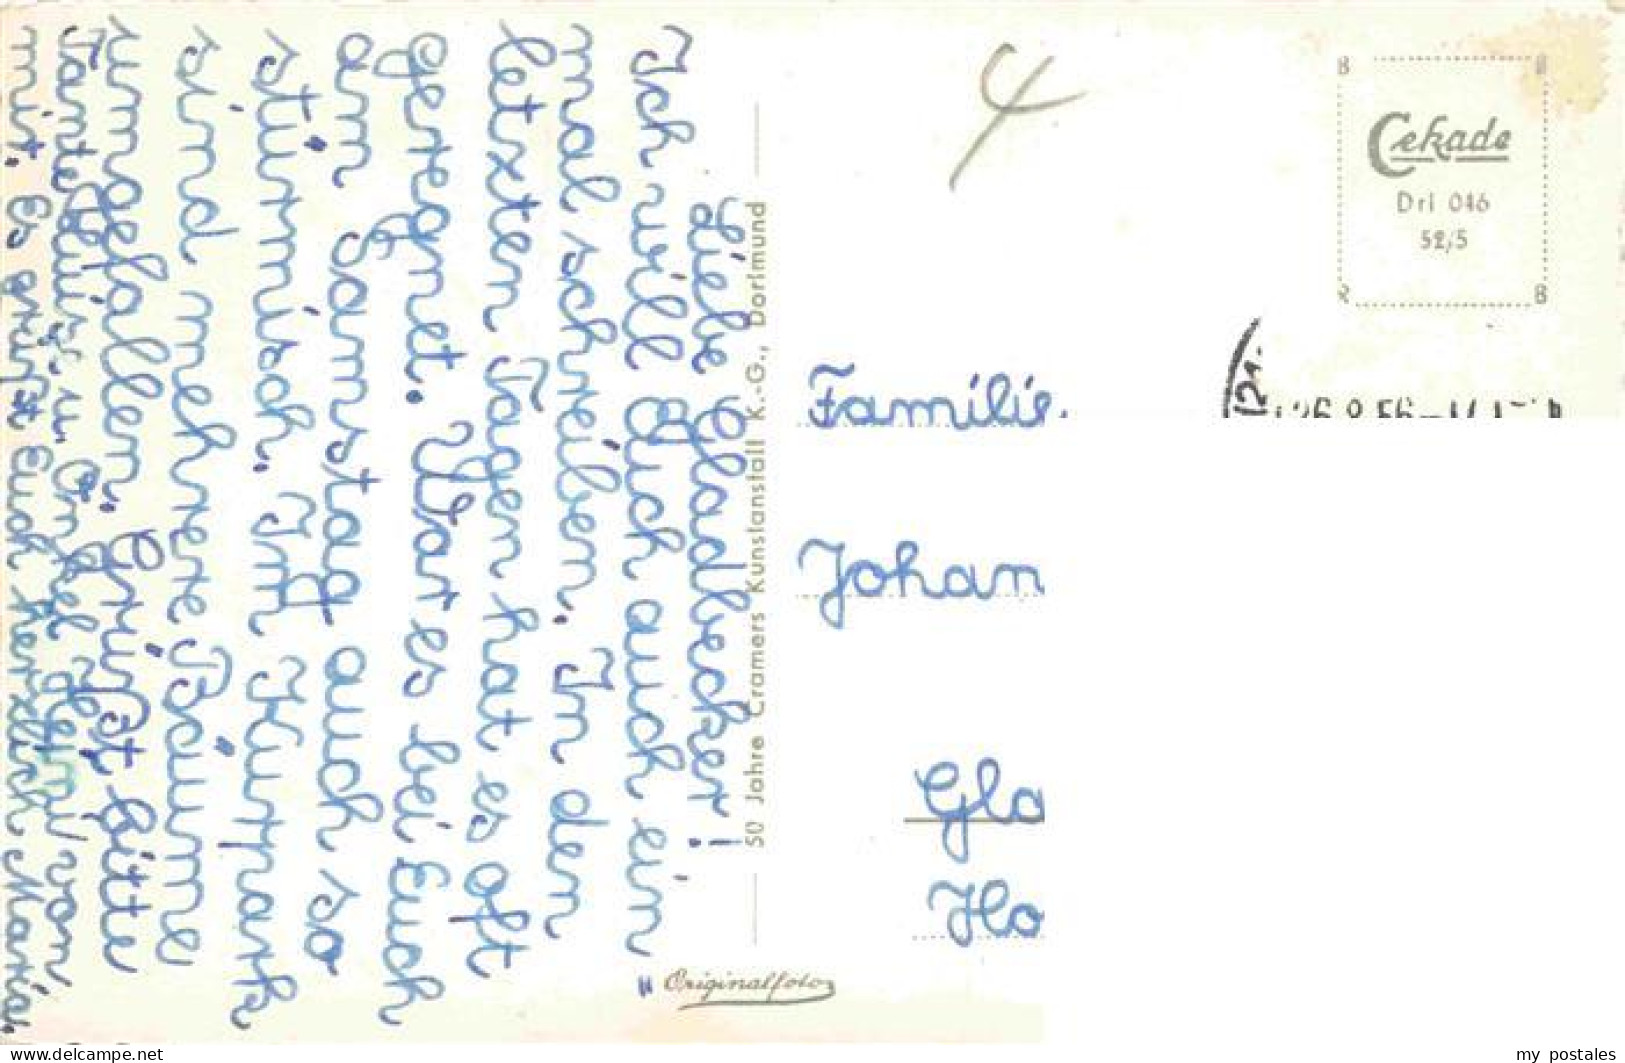 Liebe Gladbecker!
Ich will Euch auch ein
mal schreiben. In den
letzten Tagen hat es oft
geregnet. War es bei Euch
am Samstag auch so
stürmisch. Im Kurpark
sind mehrere Bäume
umgefallen. Grüßt bitte
Tante Luise u. Onkel Heini von
mir. Es grüßt Euch herzlich Maria.
50 Jahre Cramers Kunstanstalt K.-G., Dortmund
Originalfoto
4
Cekade
Drl 046
52/5
Familie
Johan
Gla
Ho
my postales
www.delcampe.net